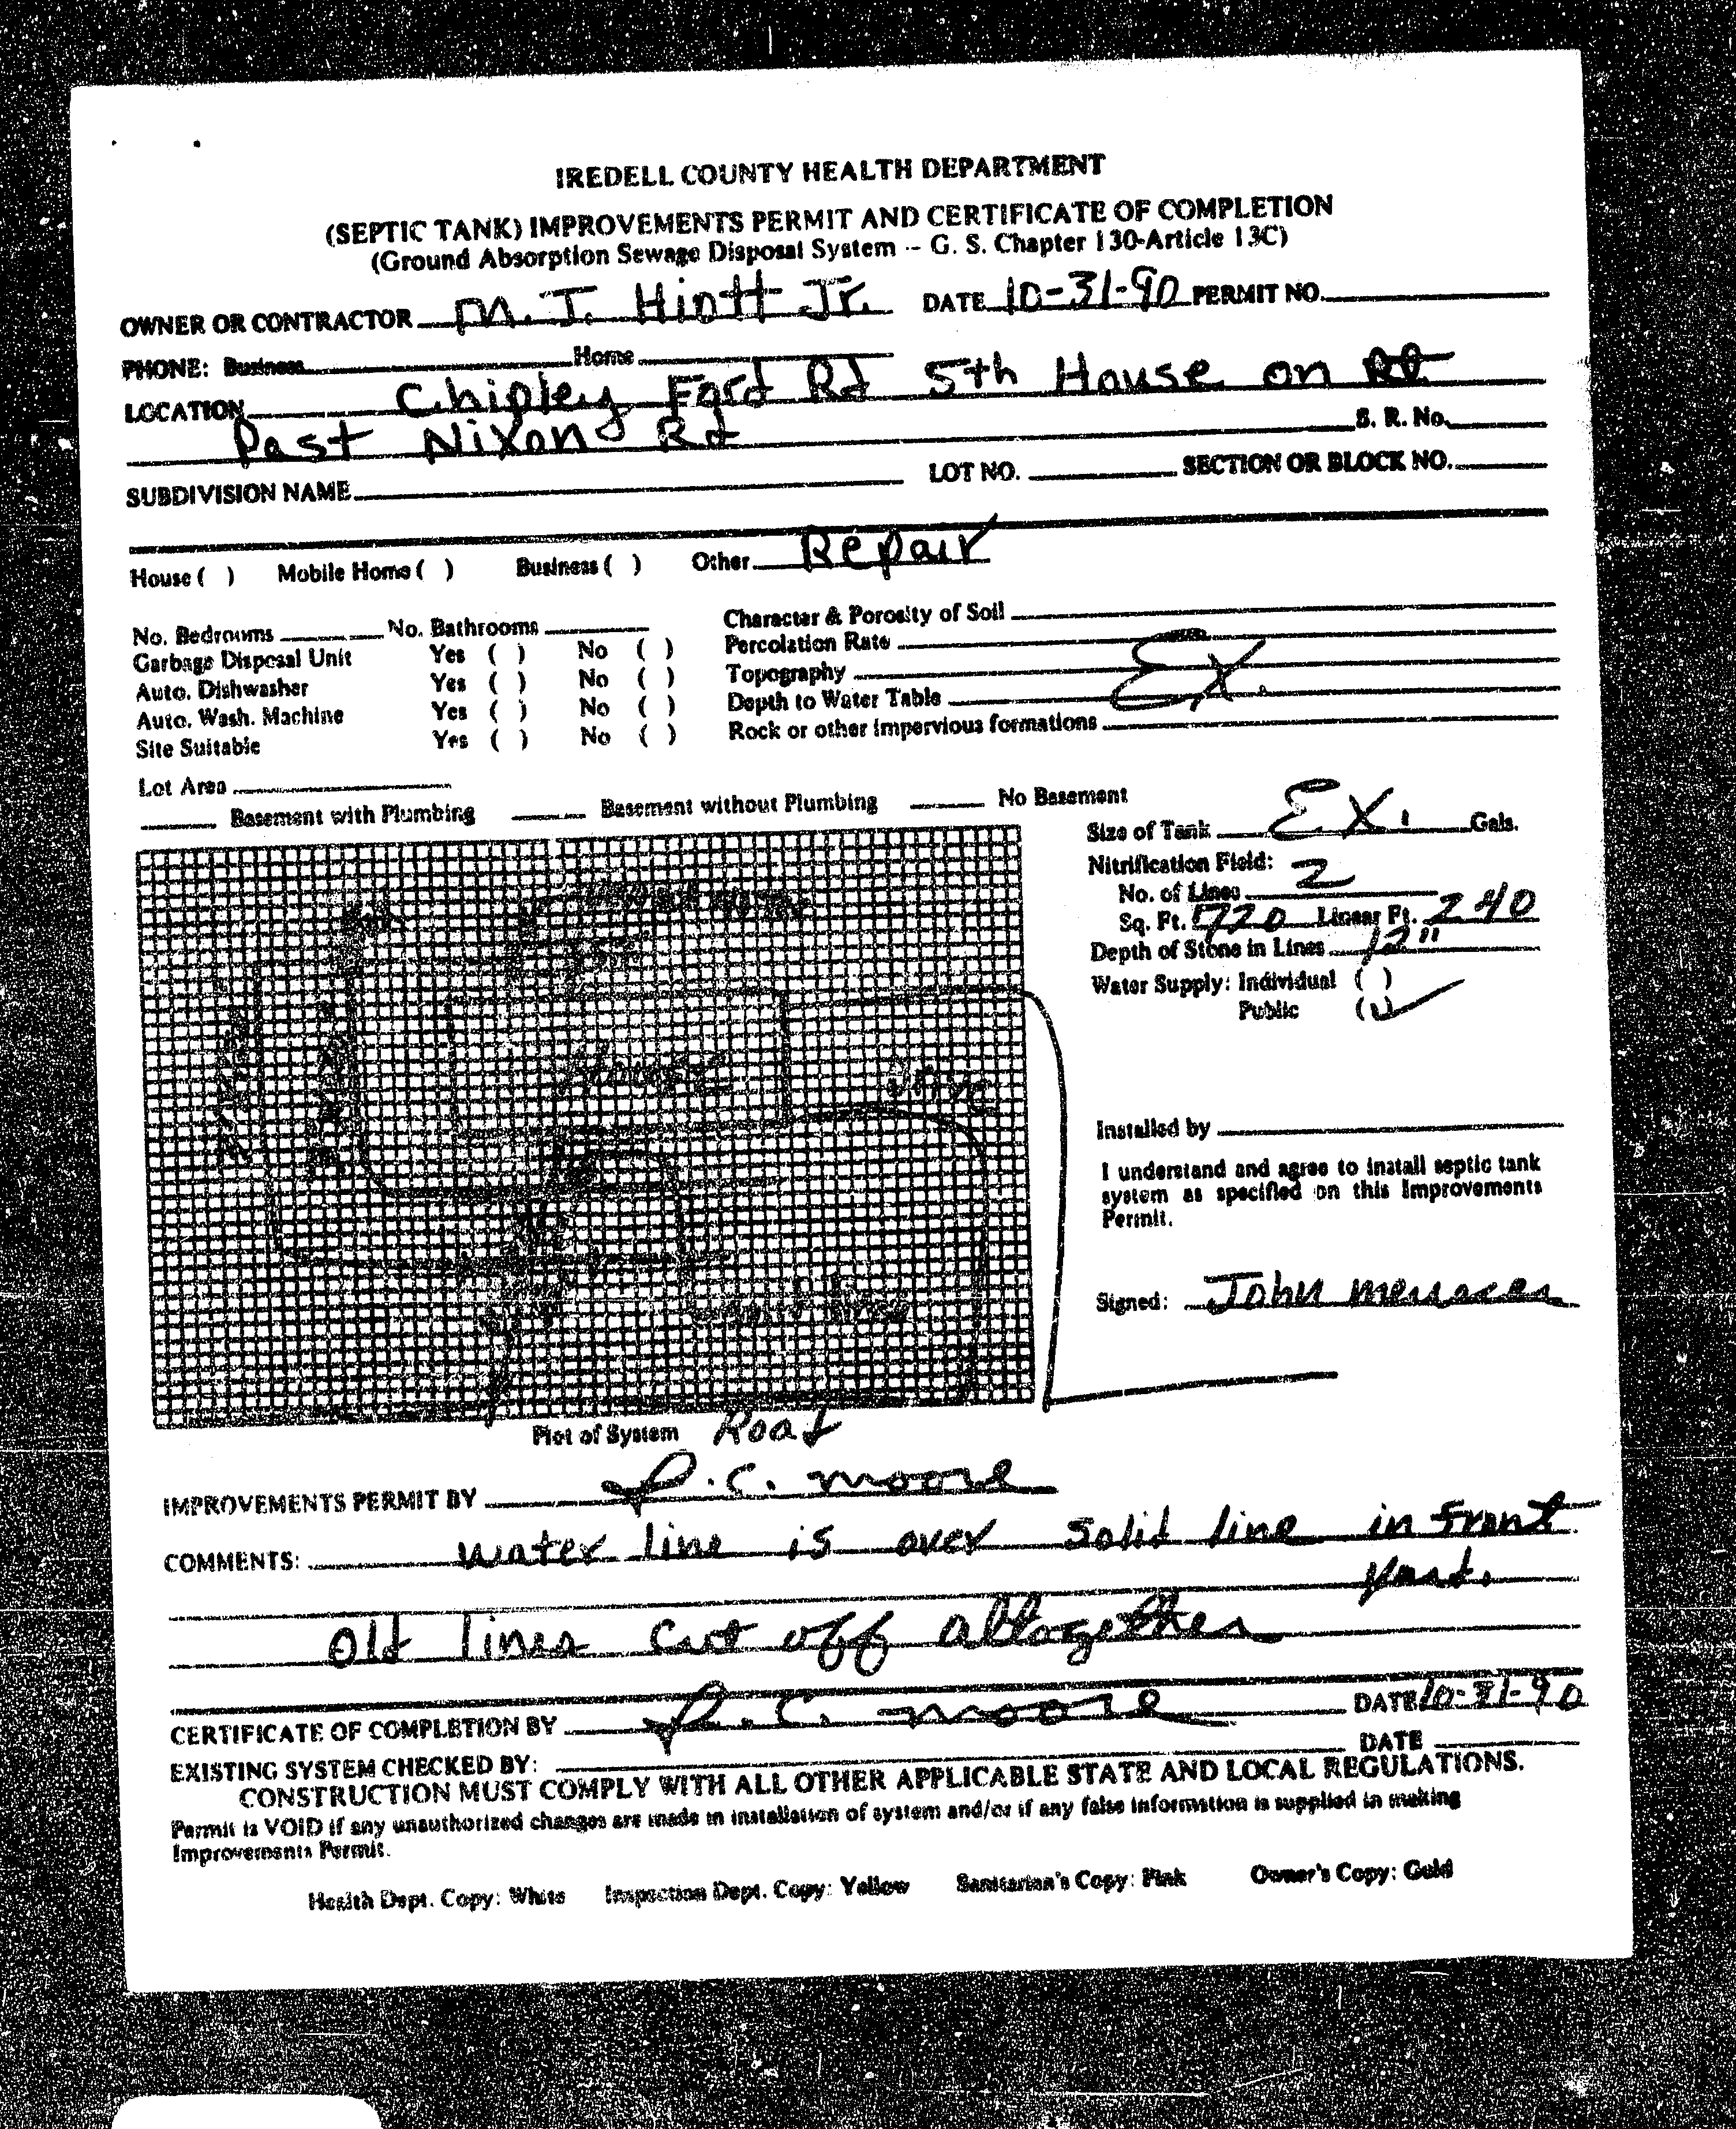 IREDELL COUNTY HEALTH DEPARTMENT
(SEPTIC TANK) IMPROVEMENTS PERMIT AND CERTIFICATE OF COMPLETION
(Ground Absorption Sewage Disposal System -- G. S. Chapter 130-Article 13C)
OWNER OR CONTRACTOR M. J. Hiott Jr. DATE 10-31-90 PERMIT NO.
PHONE: Business Home
LOCATION Chipley Ford Rd 5th House on
Past Nixon Rd S. R. No.
SUBDIVISION NAME LOT NO. SECTION OR BLOCK NO.
House ( ) Mobile Home ( ) Business ( ) Other Repair
No. Bedrooms No. Bathrooms Character & Porosity of Soil
Garbage Disposal Unit Yes ( ) No ( ) Percolation Rate
Auto. Dishwasher Yes ( ) No ( ) Topography EX.
Auto. Wash. Machine Yes ( ) No ( ) Depth to Water Table
Site Suitable Yes ( ) No ( ) Rock or other impervious formations
Lot Area
Basement with Plumbing Basement without Plumbing No Basement
Size of Tank EX. Gals.
Nitrification Field:
No. of Lines 2
Sq. Ft. 720 Linear Ft. 240
Depth of Stone in Lines 12"
Water Supply: Individual ( )
Public (✓)
House
drive
Installed by
I understand and agree to install septic tank
system as specified on this Improvements
Permit.
Signed: John
Plot of System Road
IMPROVEMENTS PERMIT BY P.C. Moore
COMMENTS: Water line is over solid line in front
yard.
Old lines cut off altogether
CERTIFICATE OF COMPLETION BY P.C. Moore DATE 10-31-90
EXISTING SYSTEM CHECKED BY: DATE
CONSTRUCTION MUST COMPLY WITH ALL OTHER APPLICABLE STATE AND LOCAL REGULATIONS.
Permit is VOID if any unauthorized changes are made in installation of system and/or if any false information is supplied in making
Improvements Permit.
Health Dept. Copy: White Inspection Dept. Copy: Yellow Sanitarian's Copy: Pink Owner's Copy: Gold